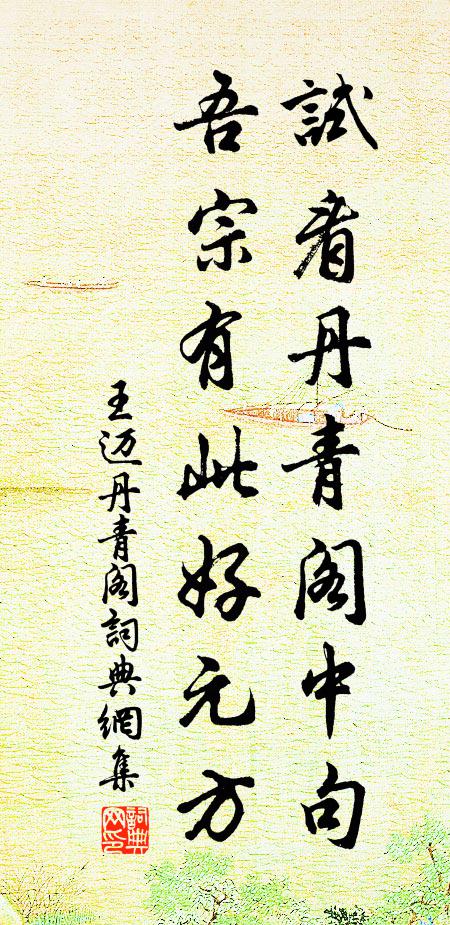 試看丹青阁中句
吾宗有此好元方
王迈丹青阁詞典網集
詞典網印